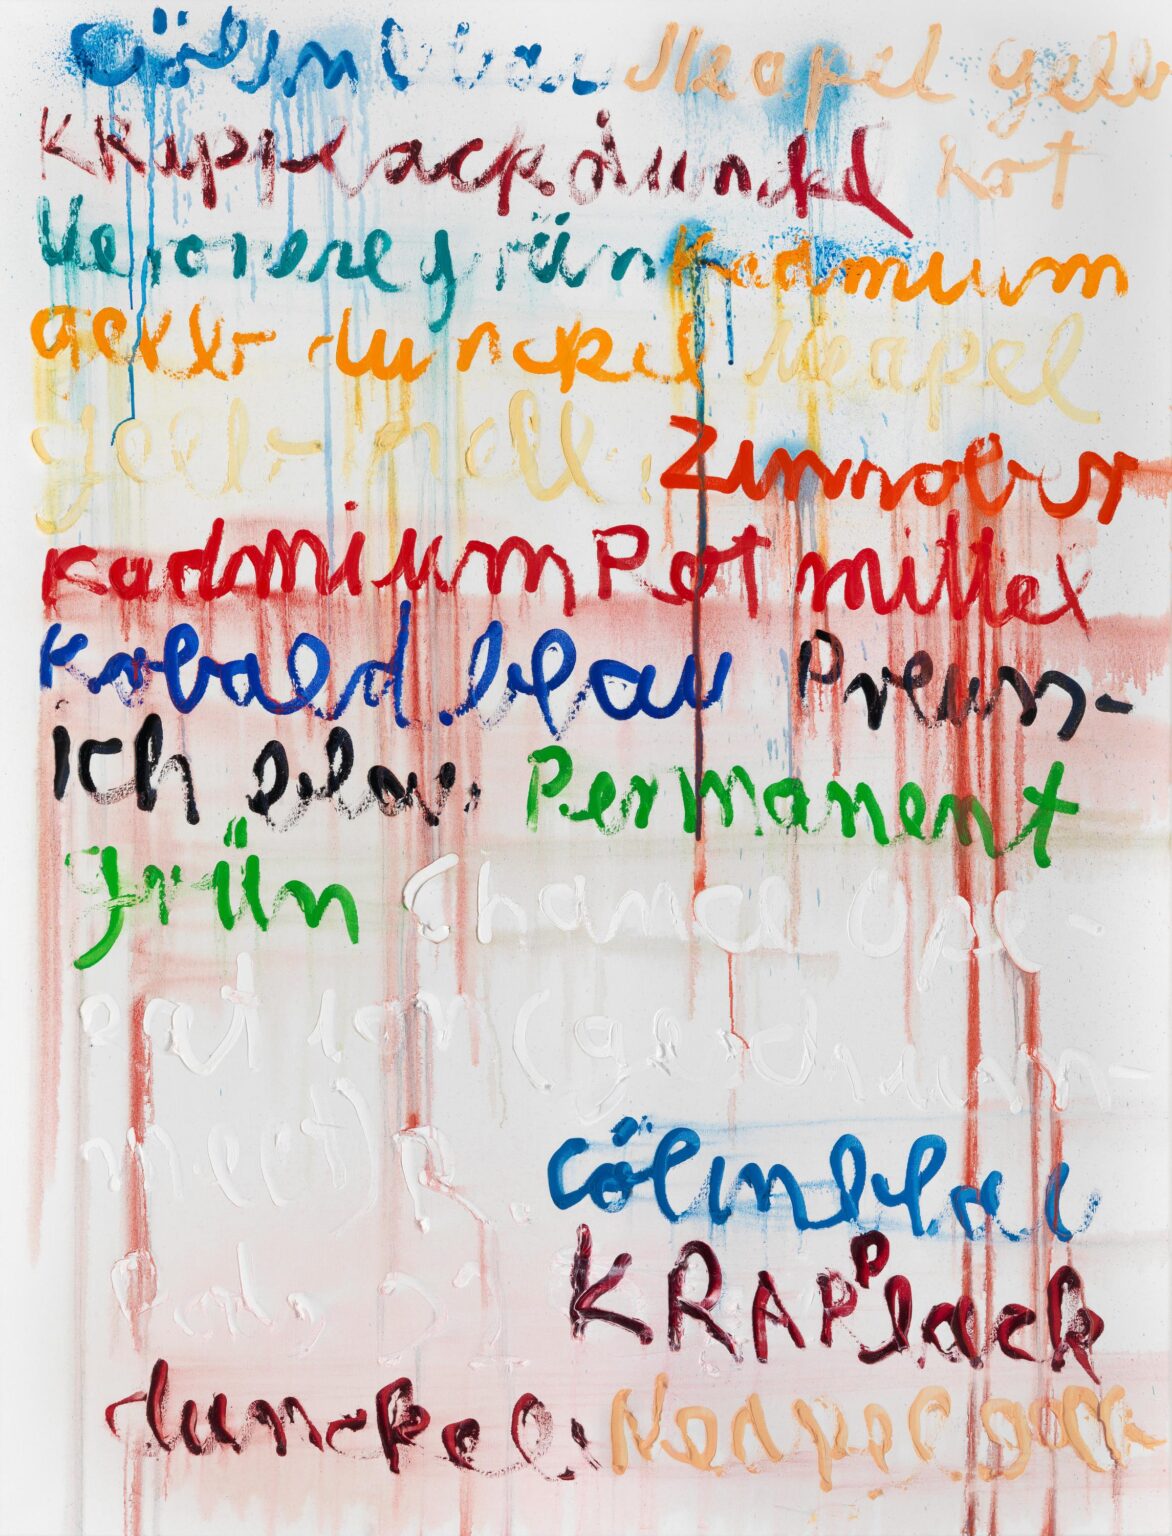 Cölinblau Neapel gelb
KRapplack.dunkel Rot
Veronesegrün Kadmium
gelb-dunckel Neapel
gelb-hell. Zinnober
Kadmium Rot mittel
Kobald.blau Preuss-
Ich blau. Permanent
grün Chance Ope-
ration (gedrum-
Cölinblau
KRAPPlack
dunckel. Neapel.gelb